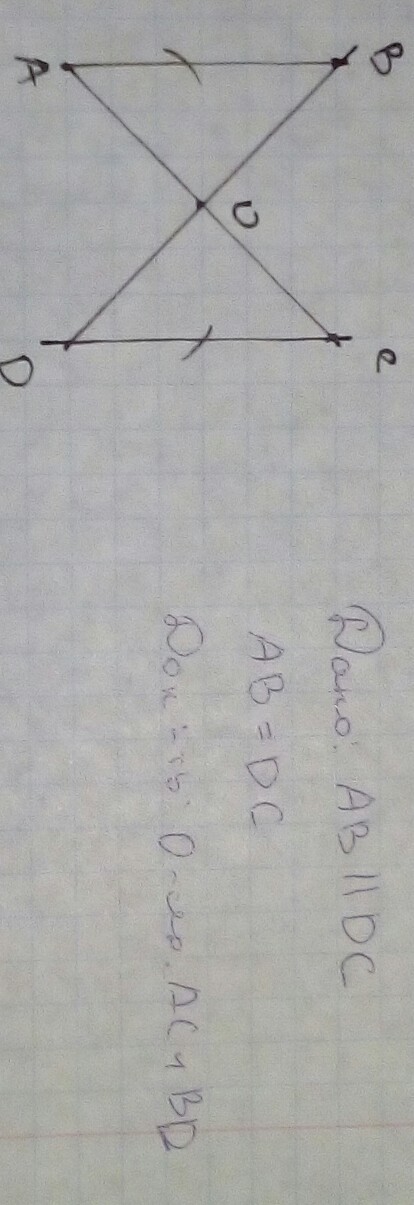 A
B
O
D
C
Дано: AB || DC
AB = DC
Док-ть: O-
AC и BD